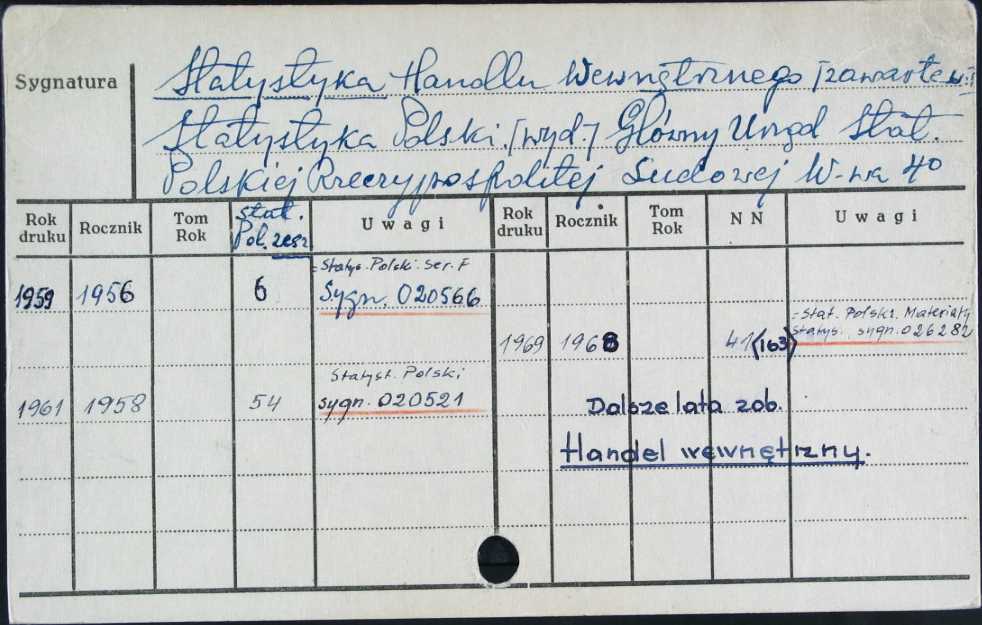 Sygnatura
Statystyka Handlu Wewnętrznego [zawarte w:]
Statystyka Polski. [wyd.] Główny Urząd Stat.
Polskiej Rzeczypospolitej Ludowej W-wa 4°
Rok druku Rocznik Tom Rok Stat. Pol. zesz. Uwagi Rok druku Rocznik Tom Rok NN Uwagi
1959 1956 6 = Statys. Polski. Ser. F
Sygn. 020566
1969 1968 41 (163) = Stat. Polski. Materiały
Statys. sygn. 026282
1961 1958 54 Statyst. Polski
sygn. 020521
Dalsze lata zob.
Handel wewnętrzny.